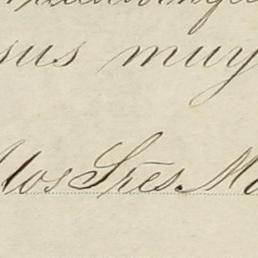 sus muy
los Sres. M